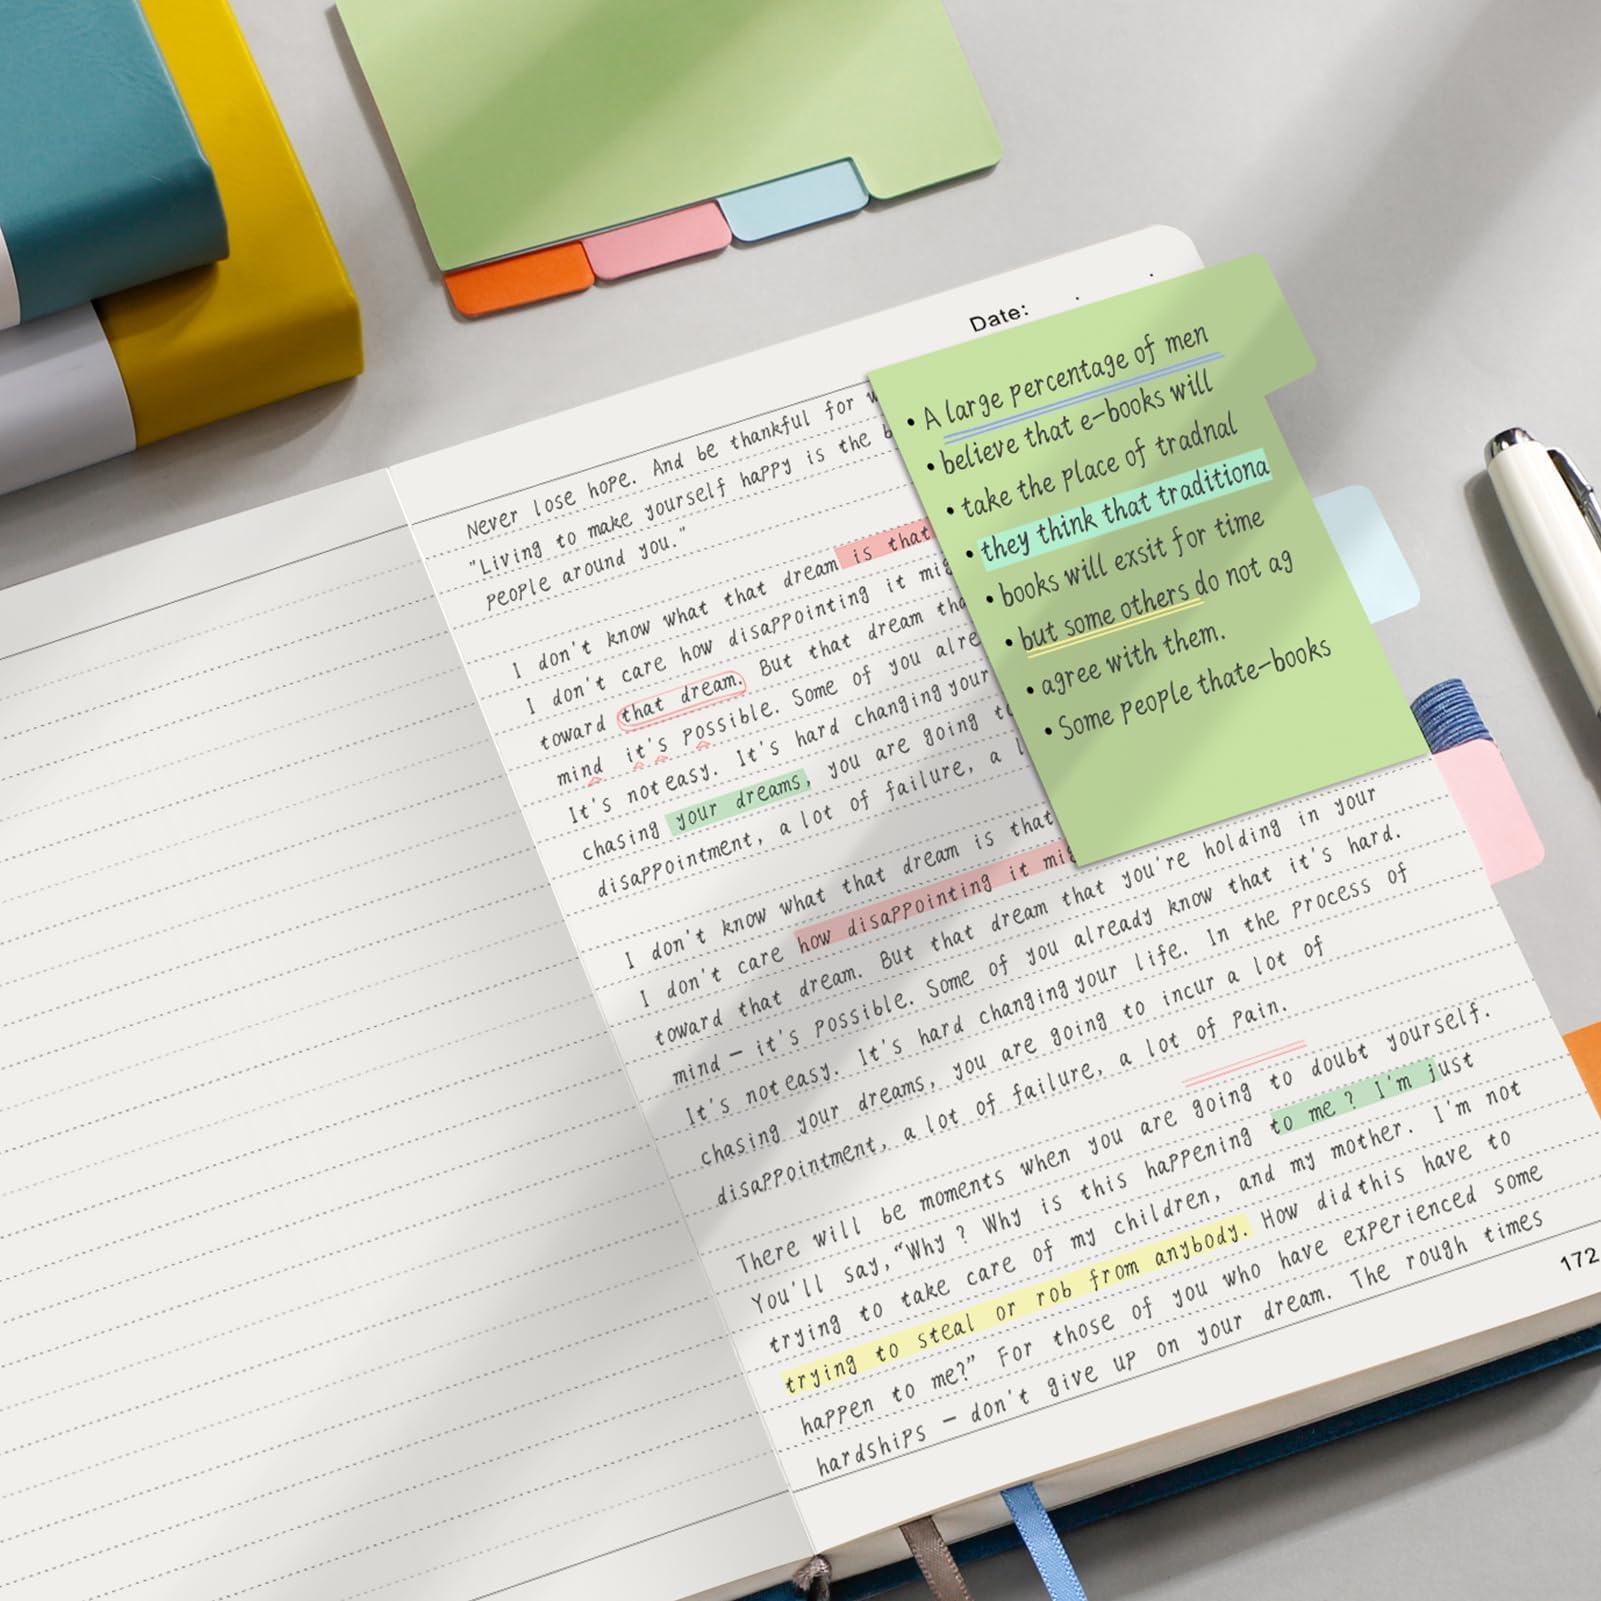 Date:
Never lose hope. And be thankful for
"Living to make yourself happy is the
people around you."
I don't know what that dream is that
I don't care how disappointing it
toward that dream. But that dream
mind it's possible. Some of you
It's not easy. It's hard changing your
chasing your dreams, you are going
disappointment, a lot of failure, a
I don't know what that dream is that
I don't care how disappointing it
toward that dream. But that dream that you're holding in your
mind – it's possible. Some of you already know that it's hard.
It's not easy. It's hard changing your life. In the process of
chasing your dreams, you are going to incur a lot of
disappointment, a lot of failure, a lot of pain.
There will be moments when you are going to doubt yourself.
You'll say,"Why ? Why is this happening to me ? I'm just
trying to take care of my children, and my mother. I'm not
trying to steal or rob from anybody. How did this have to
happen to me?" For those of you who have experienced some
hardships – don't give up on your dream. The rough times
172
• A large percentage of men
• believe that e-books will
• take the place of tradnal
• they think that traditiona
• books will exsit for time
• but some others do not ag
• agree with them.
• Some people thate-books